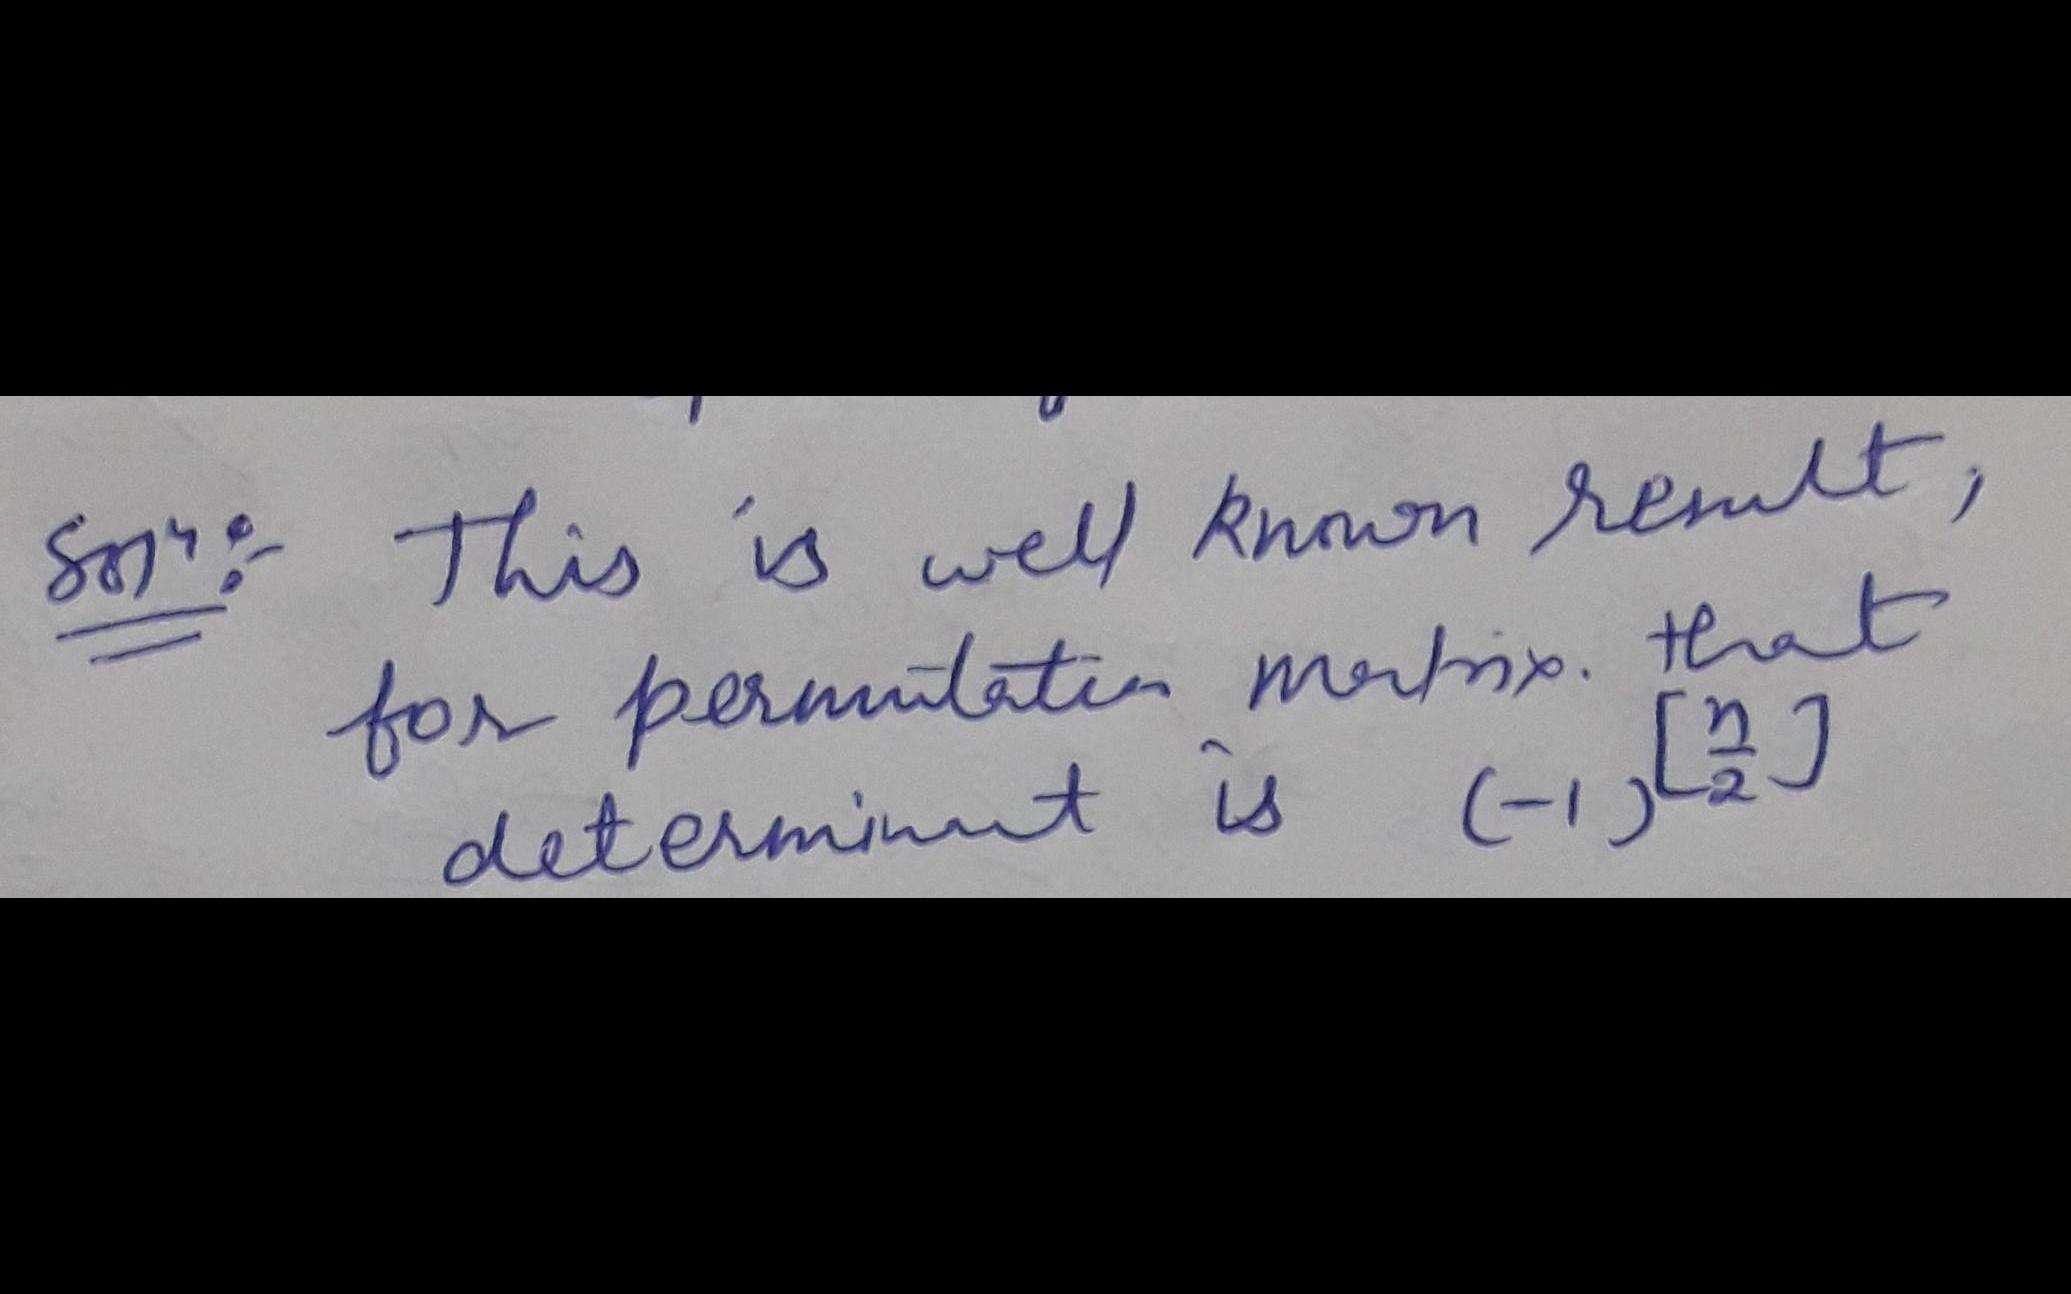 Solⁿ:- This is well known result,
for permutation matrix. that
determinant is (-1)^[n/2]